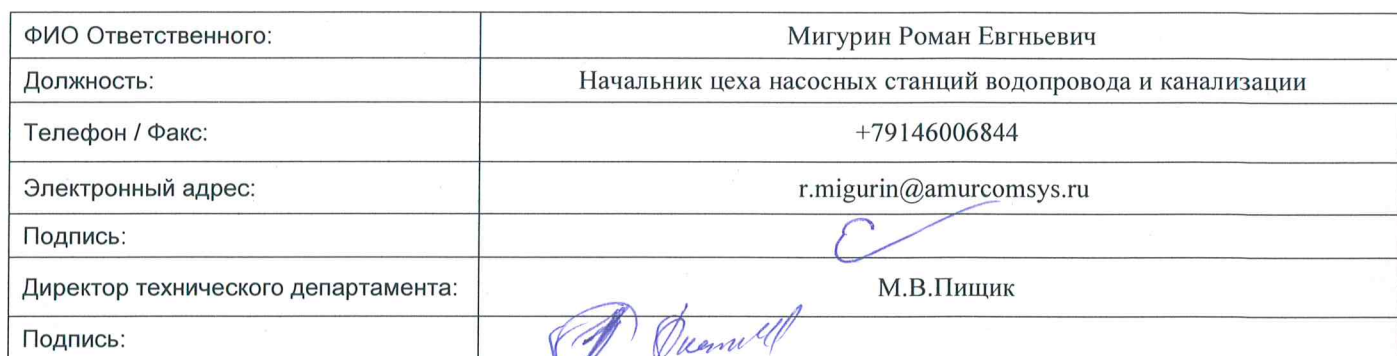 ФИО Ответственного: Мигурин Роман Евгньевич
Должность: Начальник цеха насосных станций водопровода и канализации
Телефон / Факс: +79146006844
Электронный адрес: r.migurin@amurcomsys.ru
Подпись:
Директор технического департамента: М.В.Пищик
Подпись: